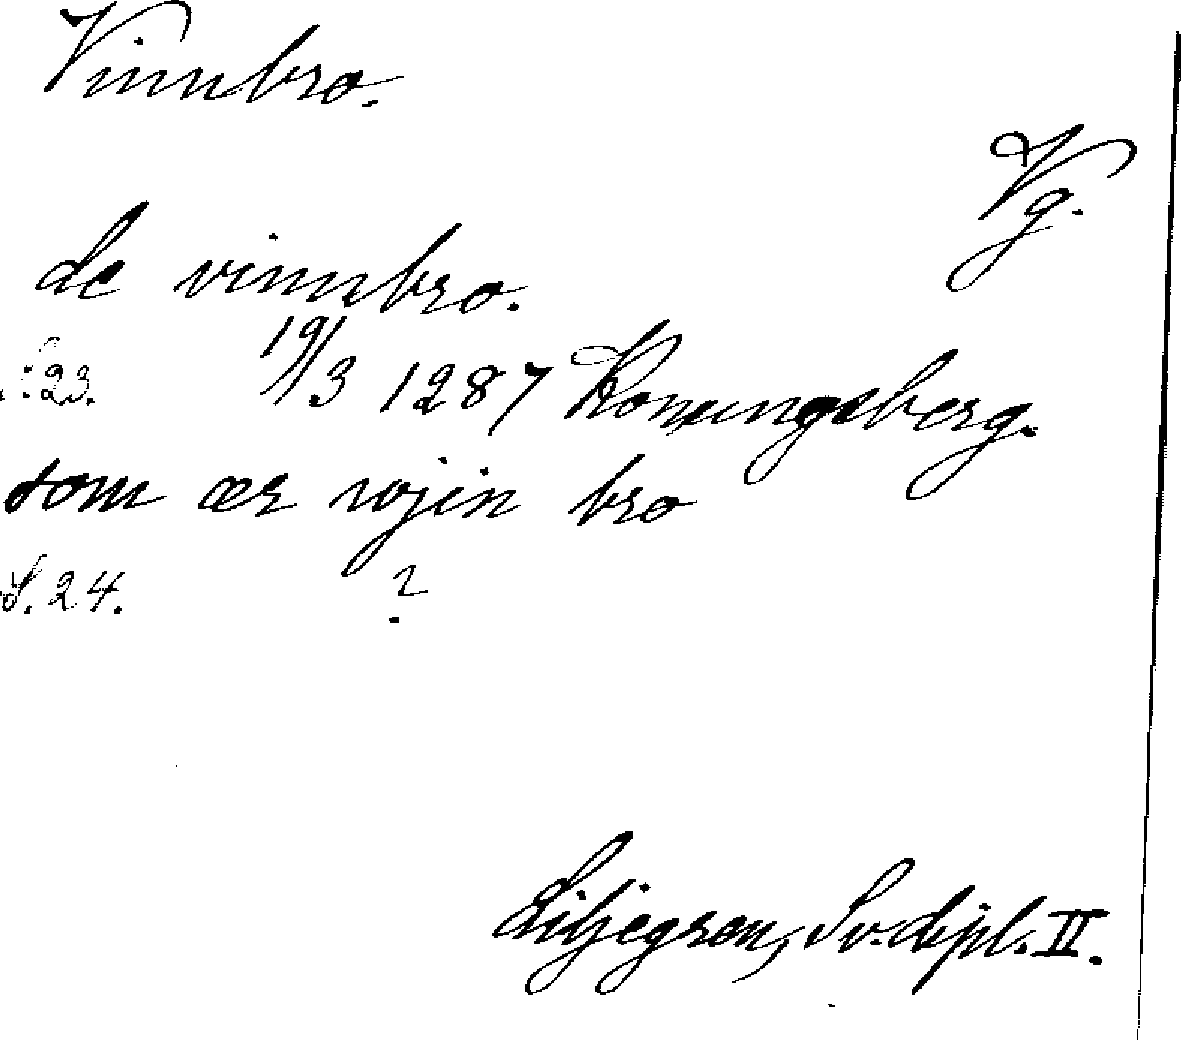 Vinnbro.
Vg.
de vinnbro.
S. 23. 19/3 1287 Konungsberg.
som ær wjin bro
S. 24. ?
Liljegren, Sv. dipl. II.